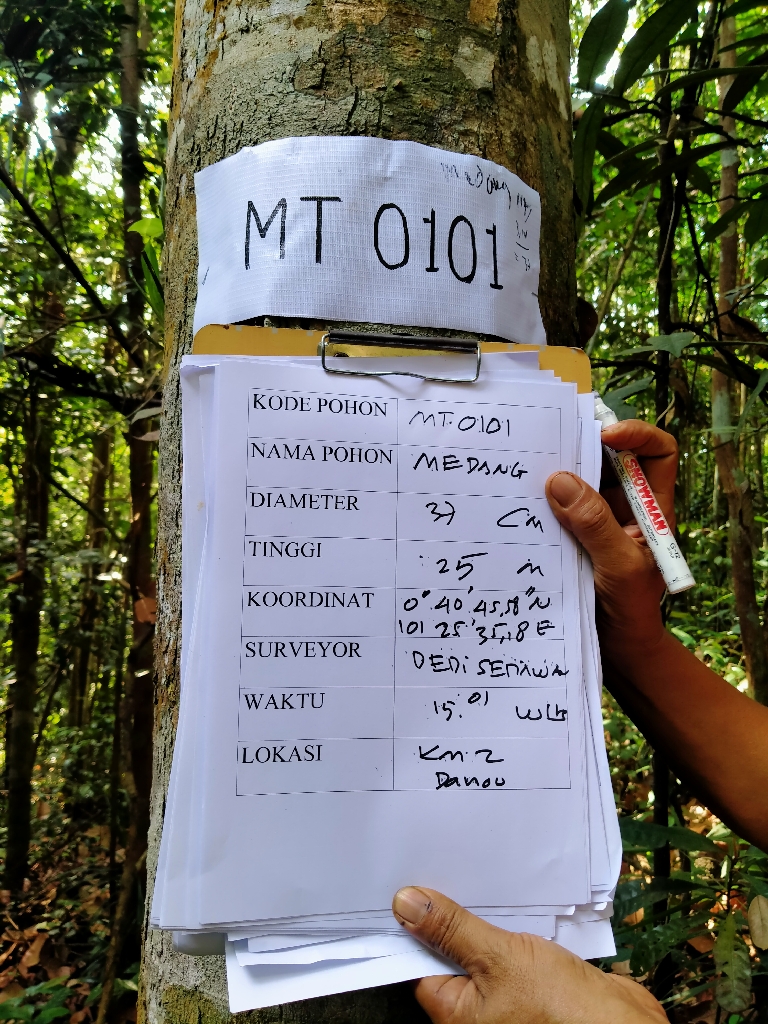 MT 0101
KODE POHON MT.0101
NAMA POHON MEDANG
DIAMETER 37 Cm
TINGGI 25 m
KOORDINAT 0° 40' 45,58" N
101 25' 35,18 E
SURVEYOR DEDI SETIAWAN
WAKTU 15.01 WIB
LOKASI Km 2
Danou
SNOWMAN